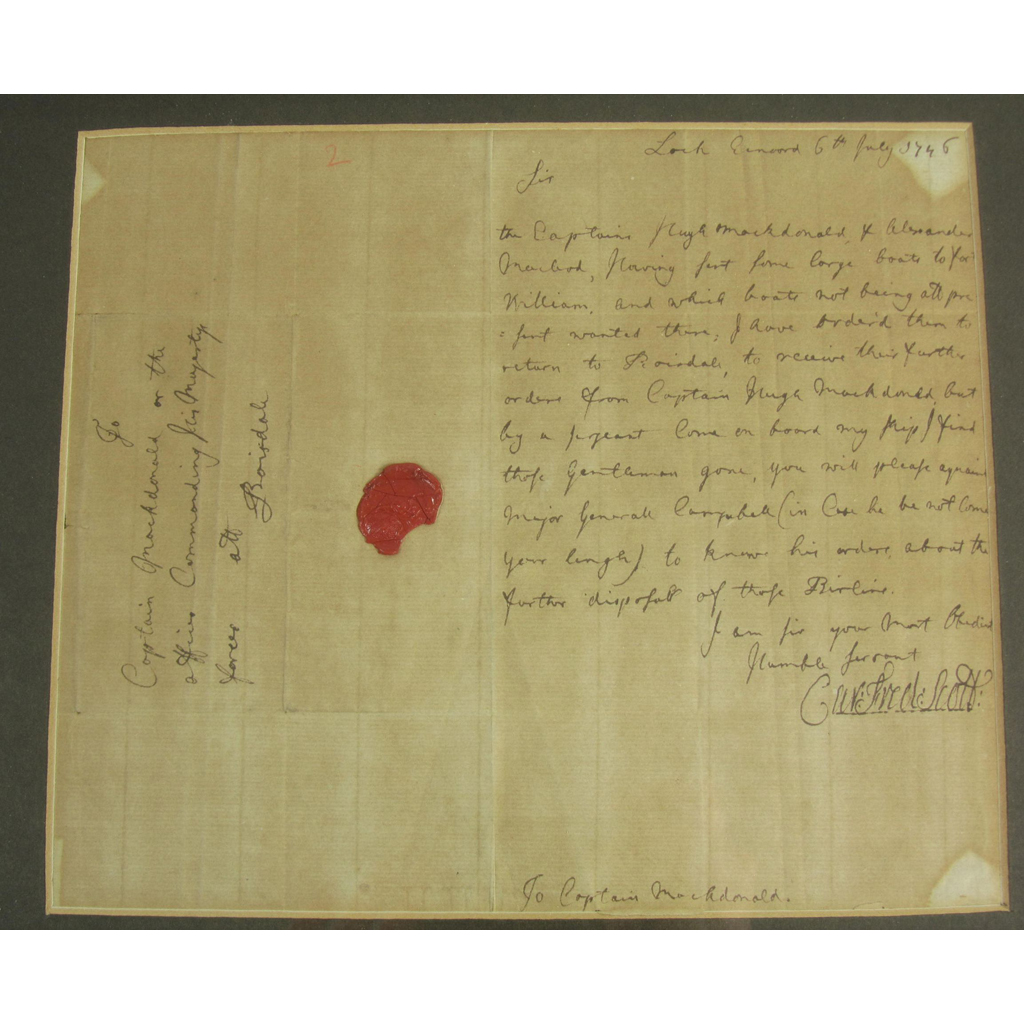 2
To
Captain Mackdonald or the
officer Commanding His Majestys
forces att Boisdale
Loch 6th July 1746
Sir
the Captains Hugh Mackdonald, & Alexander
Macleod, Having sent some large boats to for
William, and which boats not being att pre
=sent wanted there, I have order'd them to
return to Boisdale, to receive their further
orders from Captain Hugh Mackdonald, but
by a sergeant Come on board my ship I find
those Gentleman gone, you will please aquaint
Major Generall Campbell (in Case he be not Come
your length) to know his orders about the
further disposall of those Birlins.
I am sir your Most Obedient
Humble servant
Car: Fred: Scott:
To Captain Mackdonald.